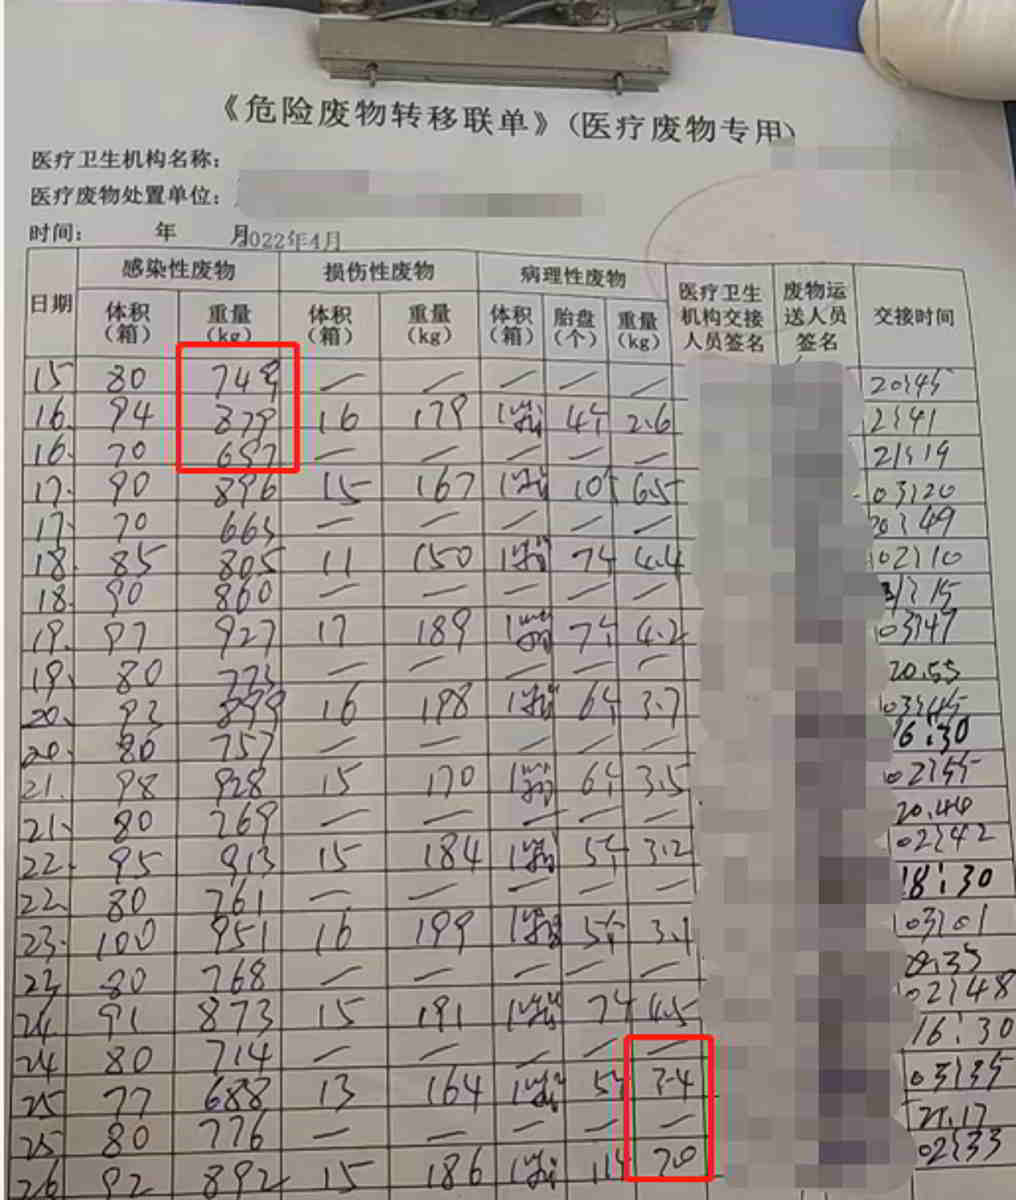 《危险废物转移联单》(医疗废物专用)
医疗卫生机构名称:
医疗废物处置单位:
时间: 年 月2022年4月
日期 感染性废物 损伤性废物 病理性废物 医疗卫生机构交接人员签名 废物运送人员签名 交接时间
体积(箱) 重量(kg) 体积(箱) 重量(kg) 体积(箱) 胎盘(个) 重量(kg)
15 80 748 — — — — — 20:45
16. 94 879 16 179 1 4个 2.6 2:41
16. 70 657 — — — — — 21:19
17. 90 896 15 167 1 10个 6.5 03:20
17. 70 665 — — — — — 20:49
18. 85 805 11 150 1 7个 4.4 02:10
18. 90 860 — — — — — :15
19. 97 927 17 189 1 7个 4.2 03:47
19. 80 773 — — — — — 20.55
20. 93 899 16 198 1 6个 3.7 03:45
20. 80 757 — — — — — 16:30
21. 98 928 15 170 1 6个 3.5 02:55
21. 80 769 — — — — — 20.44
22. 95 913 15 184 1 5个 3.2 02:42
22 80 761 — — — — — 18:30
23. 100 951 16 199 1 5个 3.1 03:01
23 80 768 — — — — — 20.35
24 91 873 15 191 1 7个 4.5 02:48
24 80 714 — — — — — 16:30
25 77 688 13 164 1 5个 3.4 03:35
25 80 776 — — — — — 21.17
26 92 892 15 186 1 11个 7.0 02:33